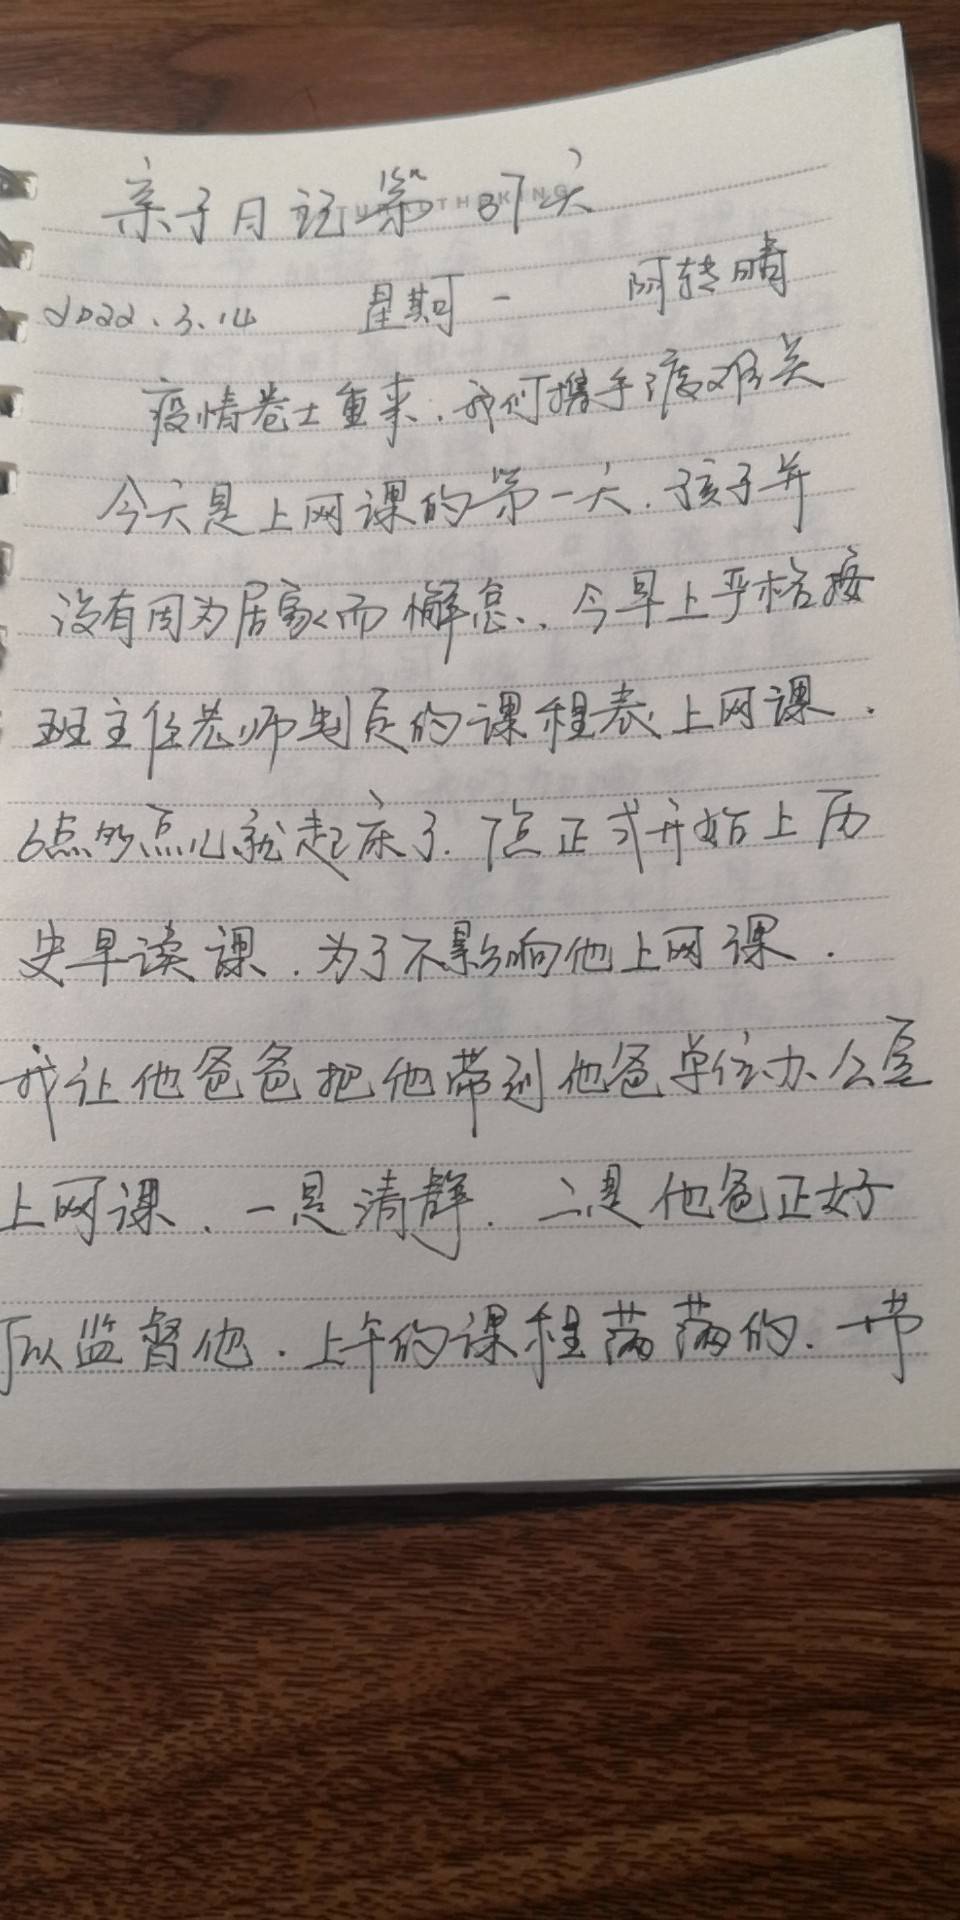 亲子日记第37天
2022.3.14 星期一 阴转晴
疫情卷土重来.我们携手渡难关
今天是上网课的第一天.孩子并
没有因为居家而懈怠.今早上严格按
班主任老师制定的课程表上网课.
6点多点儿就起床了.7点正式开始上历
史早读课.为了不影响他上网课.
我让他爸爸把他带到他爸单位办公室
上网课.一是清静.二是他爸正好
可以监督他.上午的课程满满的.一节